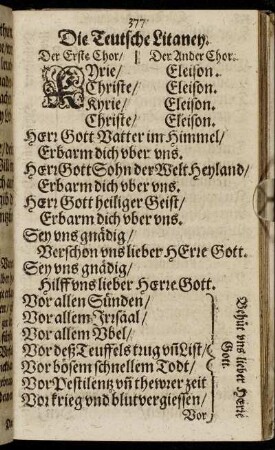 377
Die Teutsche Litaney.
Der Erste Chor/ || Der Ander Chor.
KYrie/ Eleison.
Christe/ Eleison.
Kyrie/ Eleison.
Christe/ Eleison.
HErr Gott Vatter im Himmel/
Erbarm dich vber vns.
HErr Gott Sohn der Welt Heyland/
Erbarm dich vber vns.
HErr Gott heiliger Geist/
Erbarm dich vber vns.
Sey vns gnädig/
Verschon vns lieber HErre Gott.
Sey vns gnädig/
Hilff vns lieber HErre Gott.
Vor allen Sünden/
Vor allem Jrrsal/
Vor allem Vbel/
Vor deß Teuffels trug vñ List/
Vor bösem schnellem Todt/
Vor Pestilentz vñ thewrer zeit
Vor krieg vnd blutvergiessen/
Behüt vns lieber HErre
Gott.
Vor